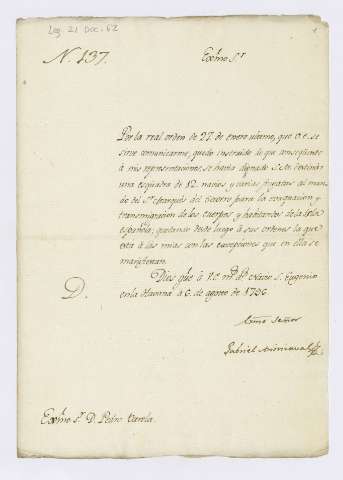 Leg. 21 Doc. 62
1
N. 137.
Exm̃o Sr
Por la real orden de 27 de enero ultimo, que V.E. se
sirve comunicarme, quedo instruido de que consequente
à mis representaciones se havia dignado S.M. destinar
una esquadra de 12 navios y varias fragatas al man-
do del Sr. Marqués del Socorro para la evacuacion y
transmigracion de los cuerpos y habitantes de la isla
española, quedando desde luego à sus ordenes la que
está à las mias con las excepciones que en ella se
manifiestan.
Dios gũe à V.E. ms. as. Navio S. Eugenio
en la Havana à 6. de agosto de 1796
D.
Exmo Señor
Gabriel
Exm̃o Sr. D. Pedro Varela.